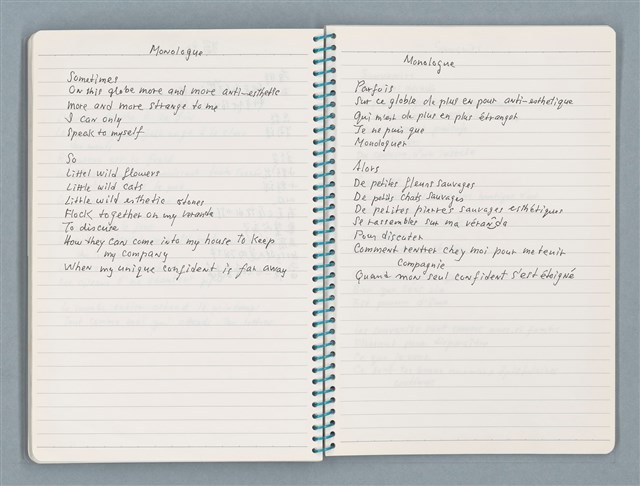 Monologue
Sometimes
On this globe more and more anti-esthetic
More and more strange to me
I can only
Speak to myself
So
Littel wild flowers
Little wild cats
Little wild esthetic stones
Flock together on my veranda
To discute
How they can come into my house to keep
my company
When my unique confident is far away
Monologue
Parfois
Sur ce globle de plus en pour anti-esthétique
Qui m'est de plus en plus étranger
Je ne puis que
Monologuer
Alors
De petites fleurs sauvages
De petits chats sauvages
De petites pierres sauvages esthétiques
Se rassembles sur ma véranda
Pour discuter
Comment rentrer chez moi pour me tenir
Compagnie
Quand mon seul confident s'est éloigné